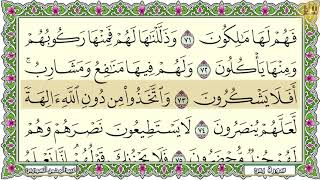 فَهُمْ لَهَا مَالِكُونَ ۝٧١ وَذَلَّلْنَاهَا لَهُمْ فَمِنْهَا رَكُوبُهُمْ
وَمِنْهَا يَأْكُلُونَ ۝٧٢ وَلَهُمْ فِيهَا مَنَافِعُ وَمَشَارِبُ ۖ
أَفَلَا يَشْكُرُونَ ۝٧٣ وَاتَّخَذُوا مِنْ دُونِ اللَّهِ آلِهَةً
لَعَلَّهُمْ يُنْصَرُونَ ۝٧٤ لَا يَسْتَطِيعُونَ نَصْرَهُمْ وَهُمْ
لَهُمْ جُنْدٌ مُحْضَرُونَ ۝٧٥ فَلَا يَحْزُنْكَ قَوْلُهُمْ ۘ إِنَّا نَعْلَمُ
سورة يس